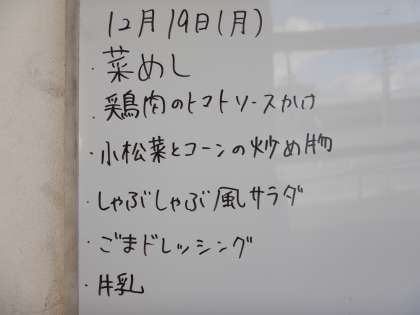 12月19日(月)
・菜めし
・鶏肉のトマトソースかけ
・小松菜とコーンの炒め物
・しゃぶしゃぶ風サラダ
・ごまドレッシング
・牛乳